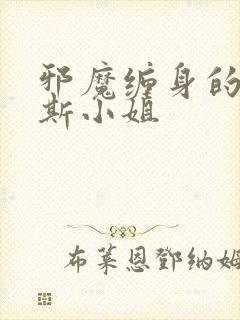 邪魔缠身的
斯小姐
布莱恩邓纳姆